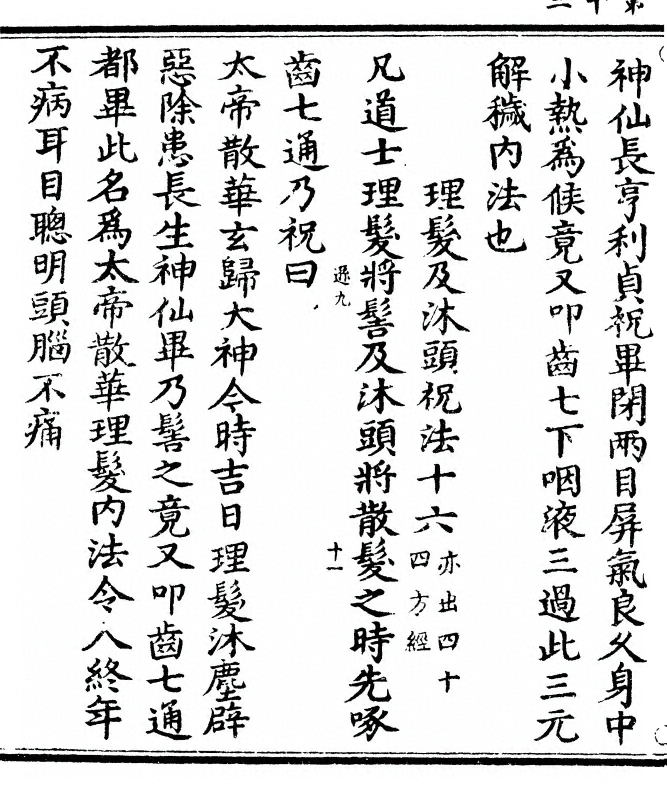 神仙長亨利貞祝畢閉兩目屏氣良久身中
小熱爲候竟又叩齒七下咽液三過此三元
解穢內法也
理髮及沐頭祝法十六亦出四十
四方經
凡道士理髮將髻及沐頭將散髮之時先啄
遜九
十一
齒七通乃祝曰
太帝散華玄歸大神今時吉日理髮沐塵辟
惡除患長生神仙畢乃髻之竟又叩齒七通
都畢此名爲太帝散華理髮內法令人終年
不病耳目聰明頭腦不痛